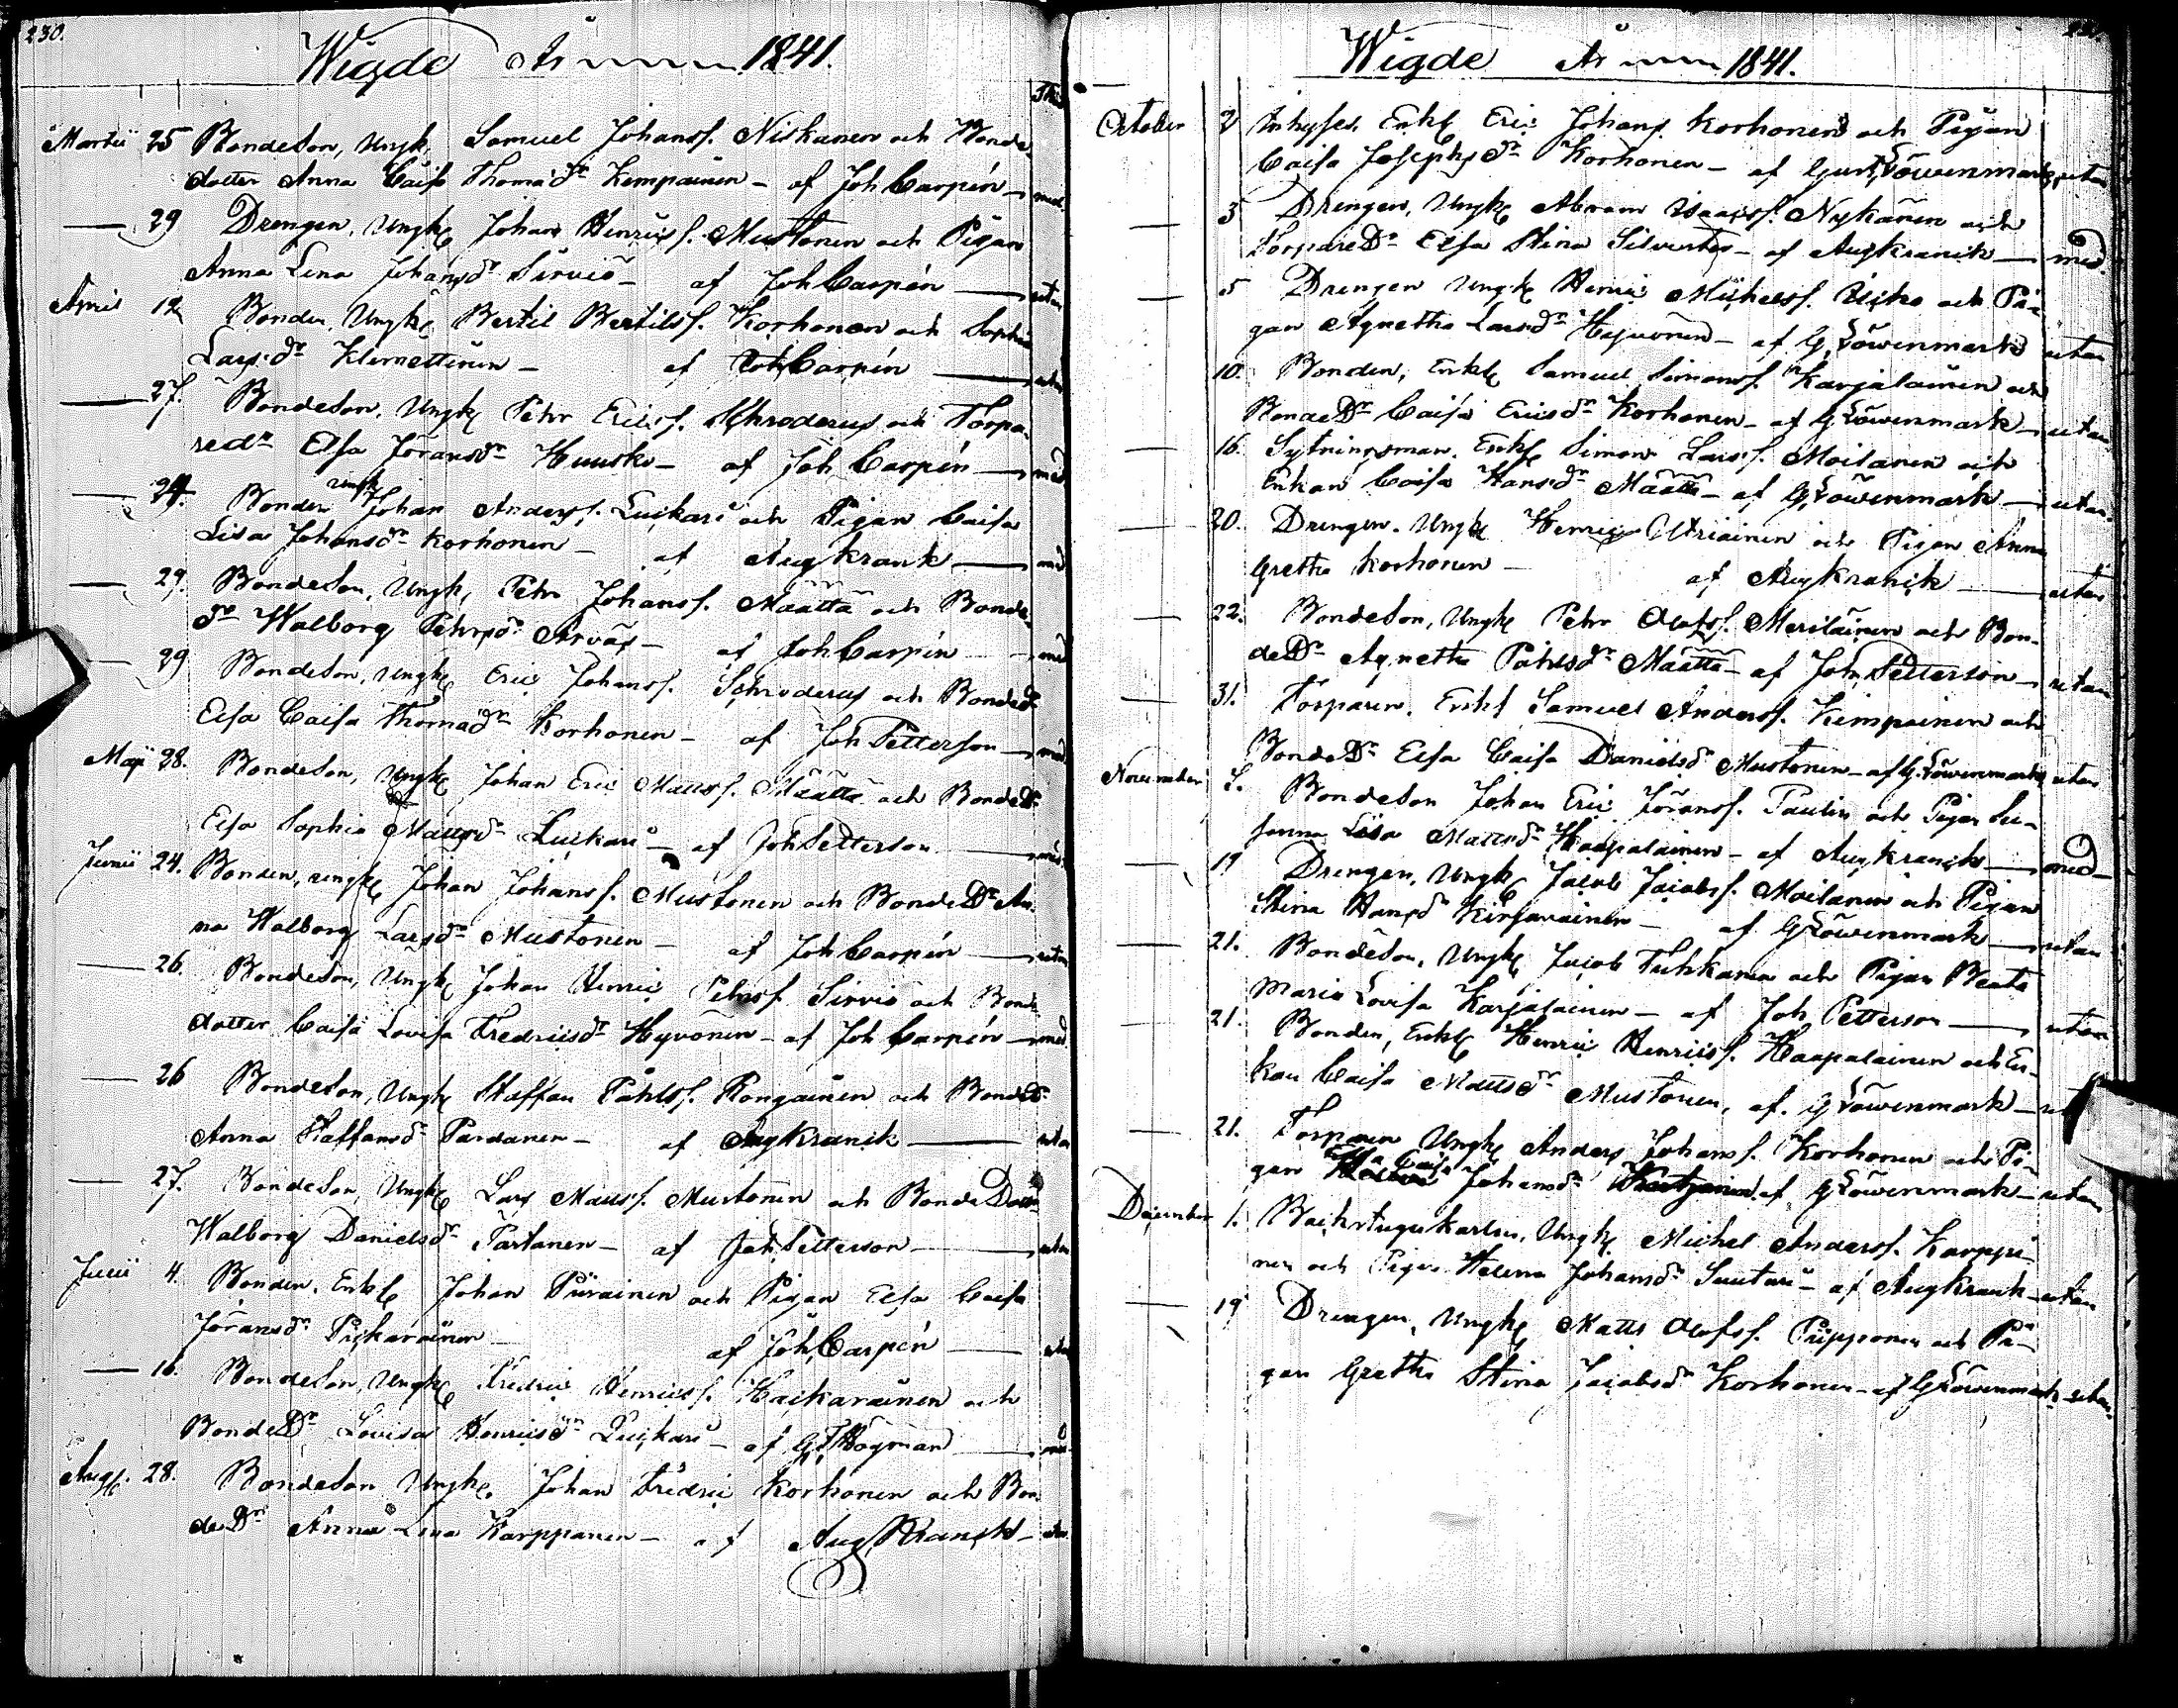 230.
Wigde År 1841.
Martii 25 Bondeson, Ungk. Samuel Johanss. Niskanen och Bonde-
dotter Anna Caisa Thomædr Kempainen - af Joh Carpén - med.
29 Drengen, Ungk Johan Henricss. Mustonen och Pigan
Anna Lena Johansdr Sirviö - af Joh Carpén - utan
April 12 Bonden, Ungk. Bertil Bertilss. Korhonen och Sophia
Larsdr Klemettinen - af Joh Carpén - utan
27. Bondeson, Ungk Pehr Ericss. Schroderus och Torpa-
redr Elsa Jöransdr Huusko - af Joh Carpén - med
29. Bonden ungk Johan Anderss. Luikari och Pigan Caisa
Lisa Johansdr Korhonen - af Aug Krank - med
29. Bondeson, Ungk, Pehr Johanss. Määttä och Bonde-
dr Walborg Pehrsdr Arväs - af Joh Carpén - med
29 Bondeson, Ungk Eric Johanss. Schroderus och Bondedr
Elsa Caisa Thomædr Korhonen - af Joh Petterson - med
Maji 28. Bondeson, Ungk Johan Eric Matss. Määttä och Bondedr
Elsa Sophia Mattsdr Luikari - af Joh Petterson - med
Junii 24. Bonden, ungk Johan Johanss. Mustonen och BondeDr An-
na Walborg Larsdr Mustonen - af Joh Carpén - utan
26. Bondeson, Ungk Johan Henric Pehrss. Sirviö och Bonde-
dotter Caisa Lovisa Fredricsdr Hyvönen - af Joh Carpén - med
26 Bondeson, Ungk Staffan Påhlss. Rongainen och Bondedr
Anna Staffansdr Pardanen - af Aug Kranck - utan
27. Bondeson, Ungk Lars Matss. Mustonen och BondeDottr
Walborg Danielsdr Partanen - af Joh Petterson - utan
Julii 4. Bonden, Enkl Johan Piirainen och Pigan Elsa Caisa
Jöransdr Pickarainen - af Joh Carpén - utan
16. Bondeson, Ungk Fredric Henricss. Haikarainen och
BondeDr Lovisa Henricsdr Luikari - af G. Högman - med
Aug. 28. Bondeson Ungk. Johan Fredric Korhonen och Bon-
deDr Anna Lena Karppanen - af Aug Kranck - utan
Wigde År 1841.
October 3 Inhyses. Enkl Eric Johanss. Korhonen och Pigan
Caisa Josephsdr Korhonen - af Gust Löwenmark, utan
3 Drengen, Ungk Abram Isaacss. Nykänen och
TorpareDr Elsa Stina Silvertes - af Aug Kranck - med.
5 Drengen Ungk Henric Michelss. och Pi-
gan Agnetha Larsdr Hyvönen - af G Löwenmark utan
10. Bonden, Enkl Samuel Simonss. Karjalainen och
BondeDr Caisa Ericsdr Korhonen - af G Löwenmark - utan
16. Sytningsman, Enkl Simon Larss. Moilanen och
Enkan Caisa Hansdr Määttä - af G Löwenmark - utan
20. Drengen, Ungk Henric Utriainen och Pigan Anna
Gretha Korhonen - af Aug Kranck - utan
22. Bondeson, Ungk Pehr Olofss. Meriläinen och Bon-
deDr Agnetha Påhlsdr Määttä - af Joh Petterson - utan
31. Torparen, Enkl Samuel Anderss. Kempainen och
BondeDr Elsa Caisa Danielsdr Mustonen - af G. Löwenmark utan
November 7. Bondeson Johan Eric Jöranss. Paulin och Pigan Su-
sanna Lisa Mattsdr Haapalainen - af Aug Kranck - med
19 Drengen, Ungk Jacob Jacobss. Moilanen och Pigan
Stina Hansdr Kinfarainen - af G Löwenmark - utan
21. Bondeson, Ungk Jacob Tuhkana och Pigan Beata
Maria Lovisa Karjalainen - af Joh Petterson - utan
21. Bonden, Enkl Henric Henricss. Haapalainen och En-
kan Caisa Mattsdr Mustonen, af. G Löwenmark - ut
21. Torparen Ungk Anders Johanss. Korhonen och Pi-
gan Caisa Johansdr af G Löwenmark - utan
December 1. Backstugukarlen, Ungk Michel Anderss. Karppi-
nen och Pigan Helena Johansdr Suutari - af Aug Kranck - utan
19 Drengen, Ungk Matts Olofss. Piipponen och Pi-
gan Gretha Stina Jacobsdr Korhonen - af G Löwenmark utan.